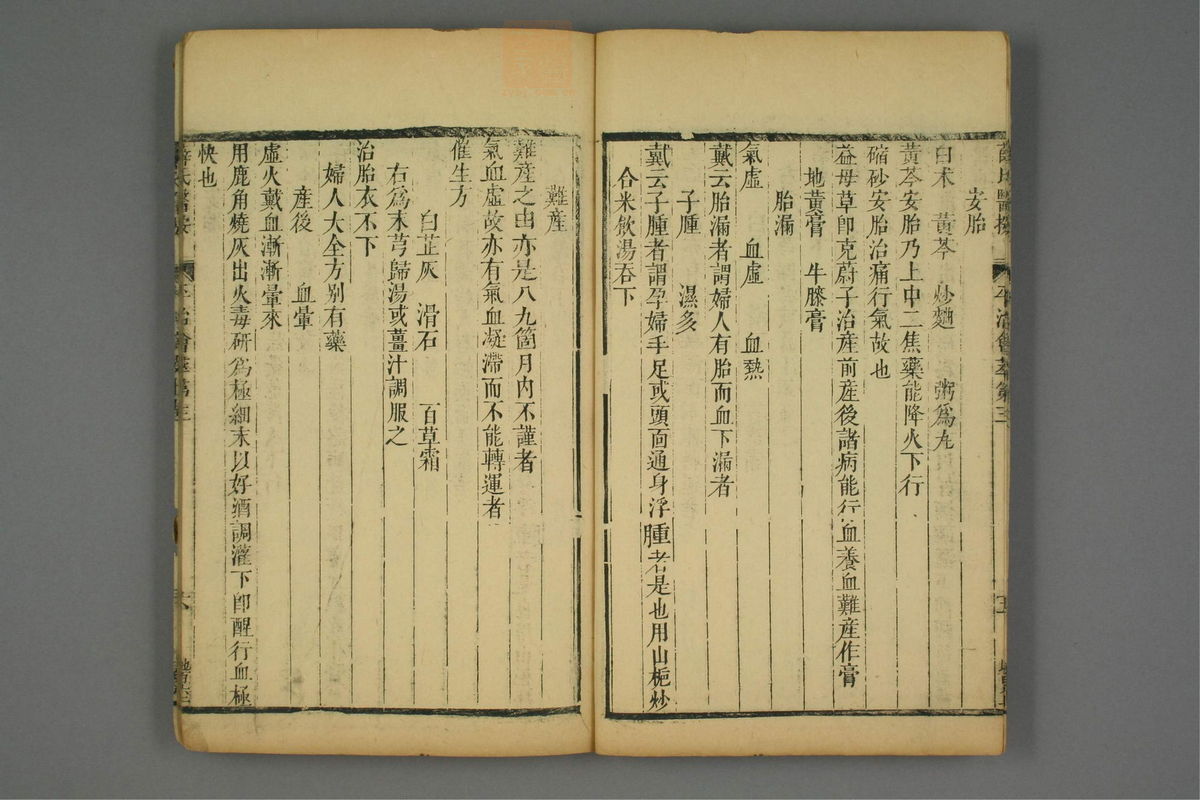 安胎
白术　黃芩　炒麯　粥爲丸
黃芩安胎乃上中二焦藥能降火下行
縮砂安胎治痛行氣故也
益母草卽克蔚子治產前產後諸病能行血養血難產作膏
地黃膏　牛膝膏
胎漏
氣虛　血虛　血熱
戴云胎漏者謂婦人有胎而血下漏者
子腫　濕多
戴云子腫者謂孕婦手足或頭面通身浮腫者是也用山梔炒
合米飲湯吞下
難產
難產之由亦是八九箇月內不謹者
氣血虛故亦有氣血凝滯而不能轉運者
催生方
白芷灰　滑石　百草霜
右爲末芎歸湯或薑汁調服之
治胎衣不下
婦人大全方别有藥
產後　血暈
虛火戴血漸漸暈來
用鹿角燒灰出火毒研爲極細末以好酒調灌下卽醒行血極
快也